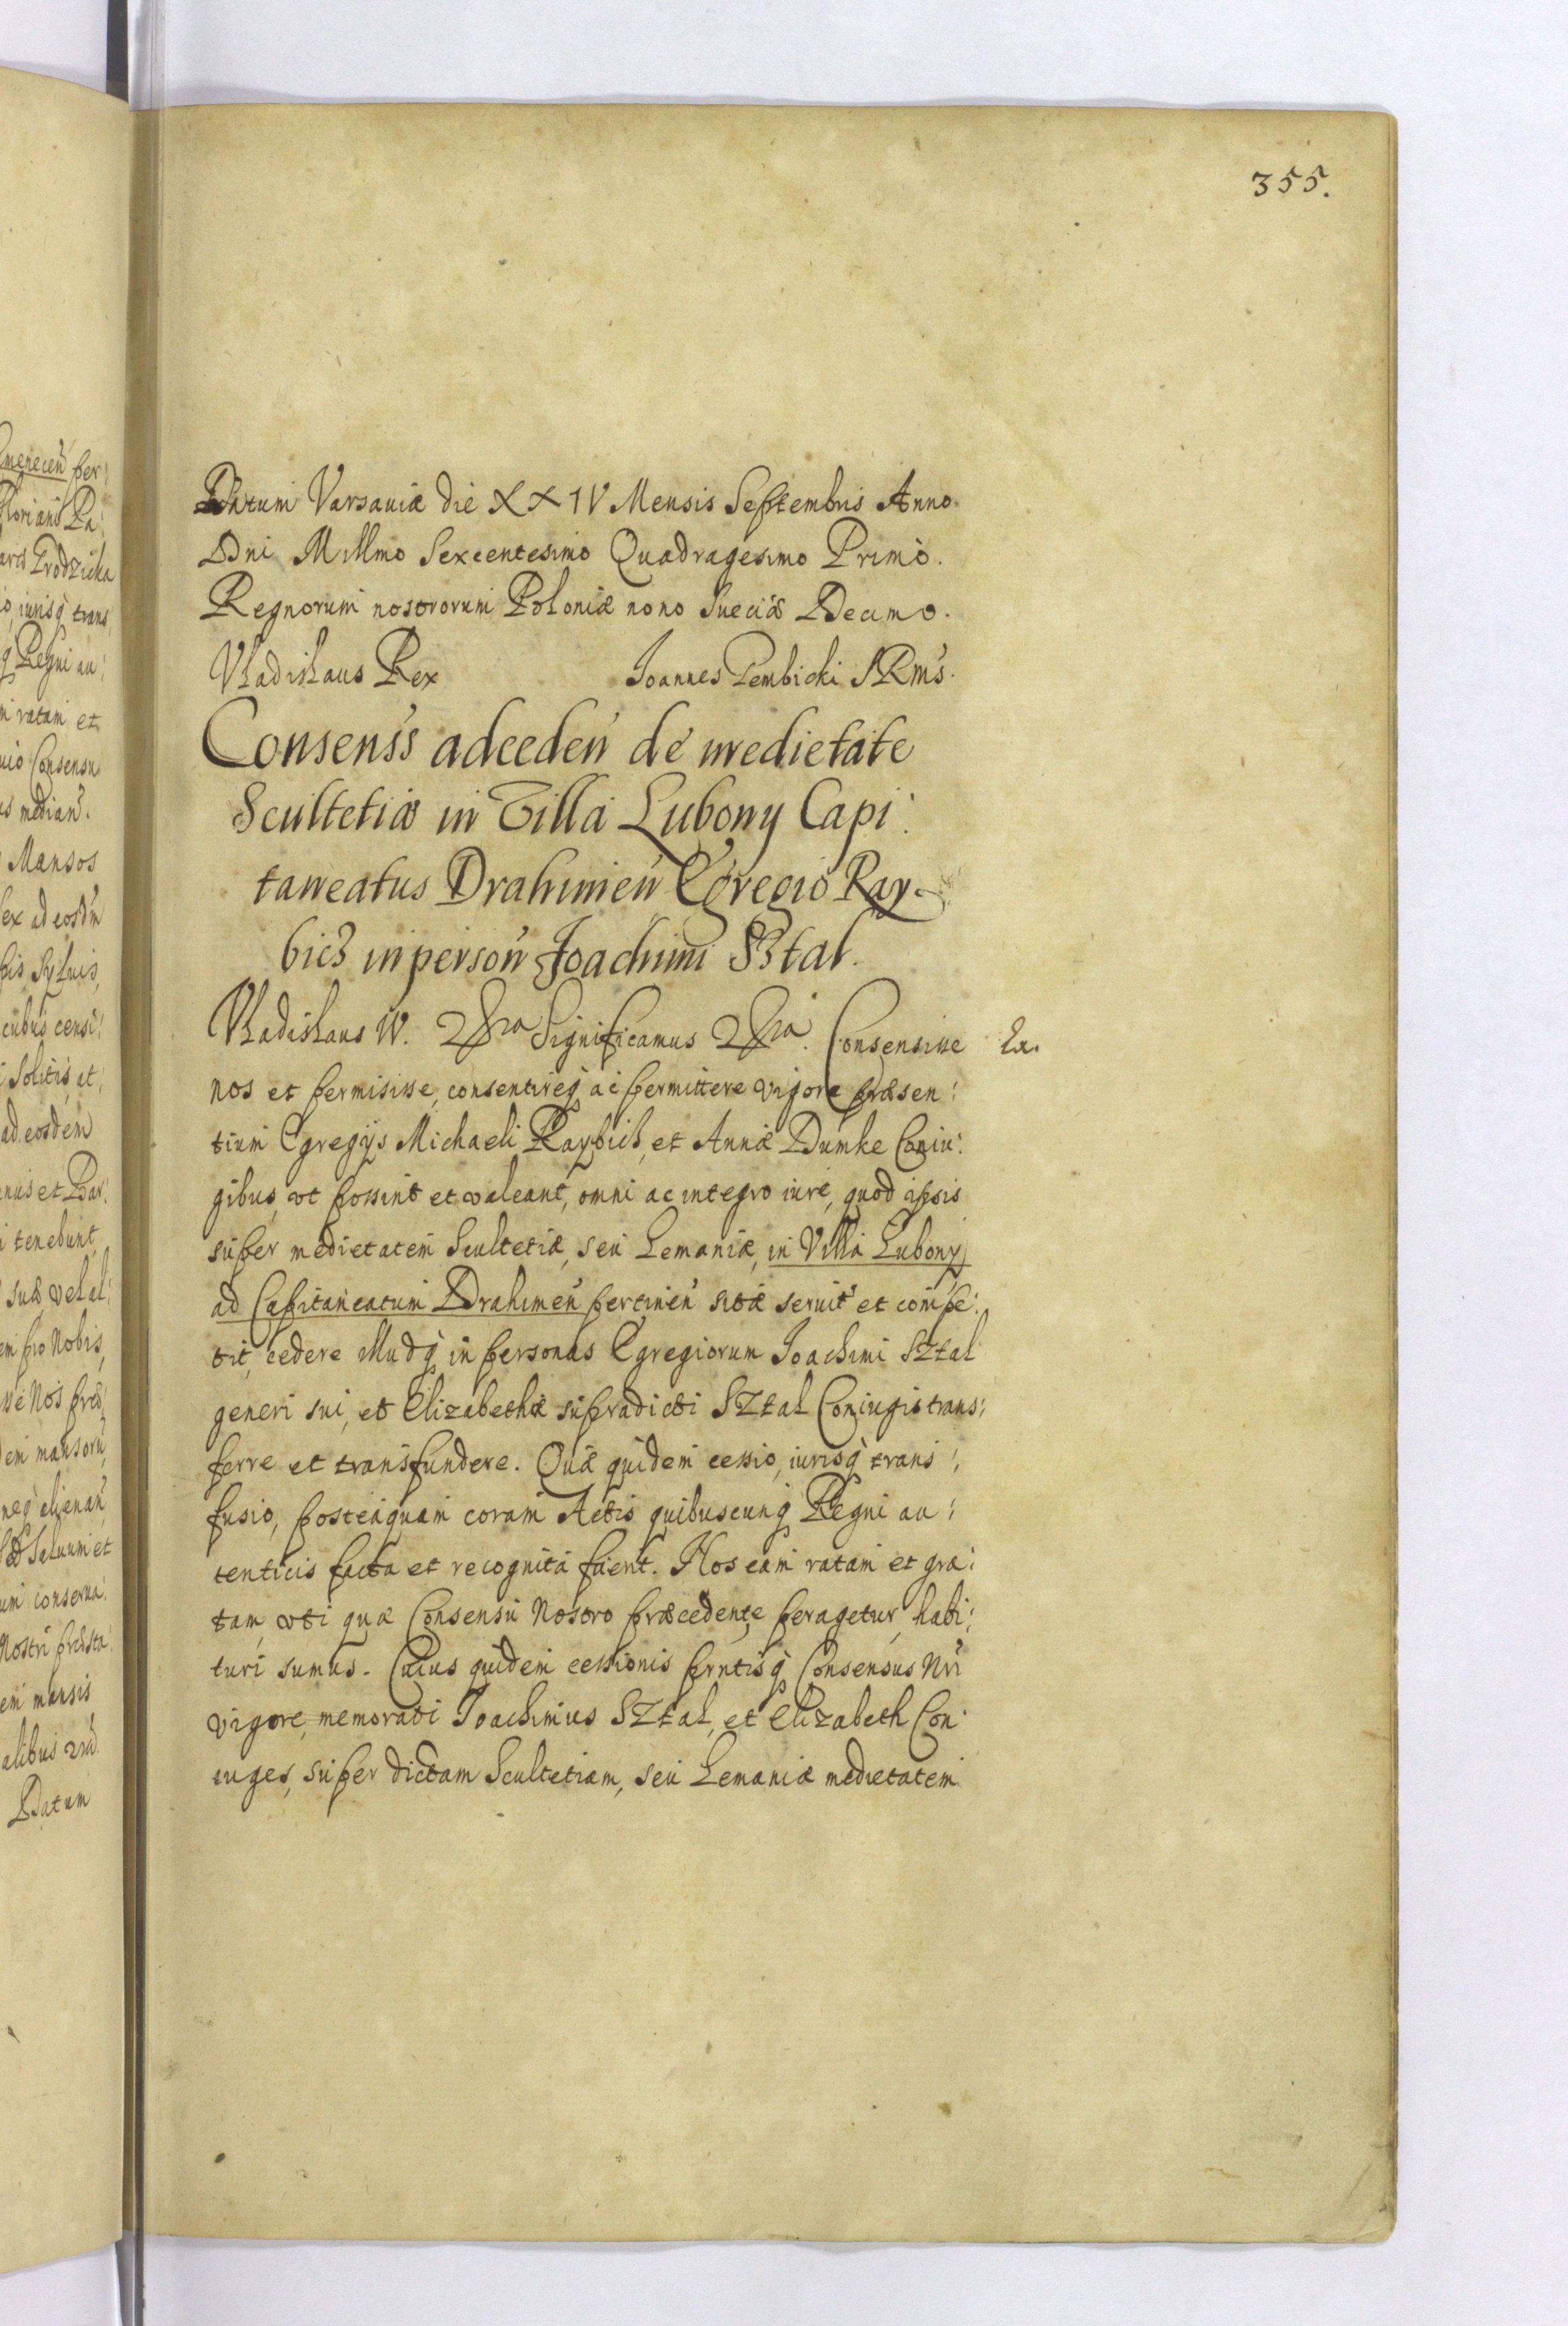 355.
Datum Varsaviæ die XXIV Mensis Septembris Anno
Dni Millmo Sexcentesimo Quadragesimo Primo.
Regnorum nostrorum Poloniæ nono Sueciæ Decimo.
Vladislaus Rex Joannes Gembicki SRMs.
Conseñs ad cedeñ de medietate
Scultetiæ in Villa Lubony Capi:
taneatus Drahimeñ Egregio Ray-
bich in persoñ Joachimi Sztal.
Vladislaus IV. Significamus Consensisse Ex.
nos et permisisse, consentireq; ac permittere vigore præsen:
tium Egregijs Michaeli Raybich, et Annæ Dumke Coniu:
gibus, vt possint et valeant, omni ac integro iure, quod ipsis
super medietatem Scultetiæ, seu Lemaniæ, in Villa Lubony
ad Capitaneatum Drahimeñ pertineñ sitæ seruit et compe:
tit, cedere illudq; in personas Egregiorum Joachimi Sztal
generi sui, et Elizabethæ supradicti Sztal Coniugis trans:
ferre et transfundere. Quæ quidem cessio, iurisq; trans:
fusio, posteaquam coram Actis quibuscunq; Regni au:
tenticis facta et recognita fuerit. Nos eam ratam et gra:
tam, vti quæ Consensu Nostro præcedente peragetur, habi:
turi sumus. Cuius quidem cessionis prntisq; Consensus Nri
vigore, memorati Joachimus Sztal, et Elizabeth Con:
iuges, super dictam Scultetiam, seu Lemaniæ medietatem